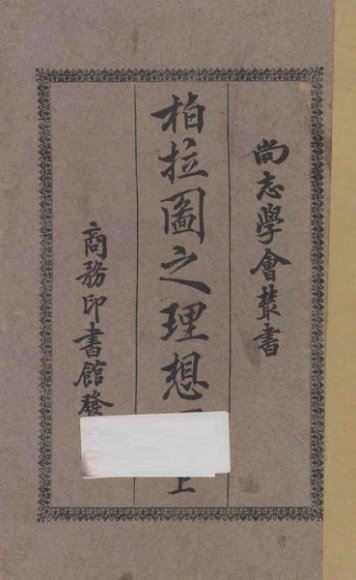 尚志學會叢書
柏拉圖之理想 上
商務印書館發